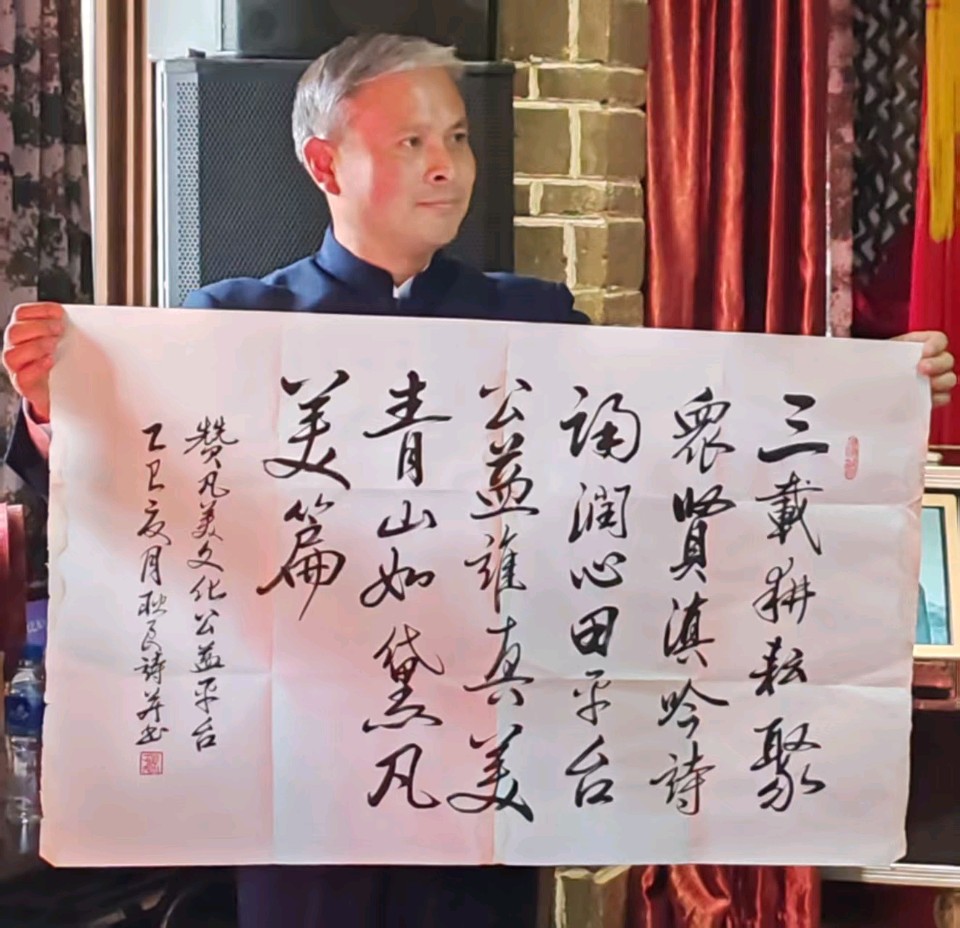 三載耕耘聚
衆賢滇吟詩
誦潤心田平台
公益誰真美
青山如黛凡
美篇
赞凡美文化公益平台
乙巳夏月耿良詩并书